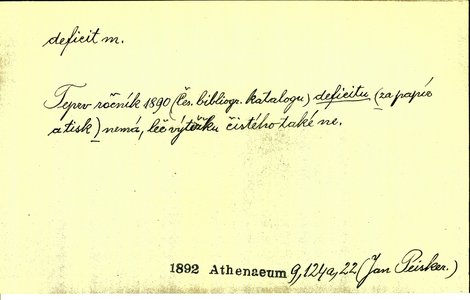 deficit m.
Teprv ročník 1890 (Čes. bibliogr. katalogu) deficitu (za papír
a tisk) nemá, leč výtěžku čistého také ne.
1892 Athenaeum 9, 124a, 22 (Jan Peisker.)